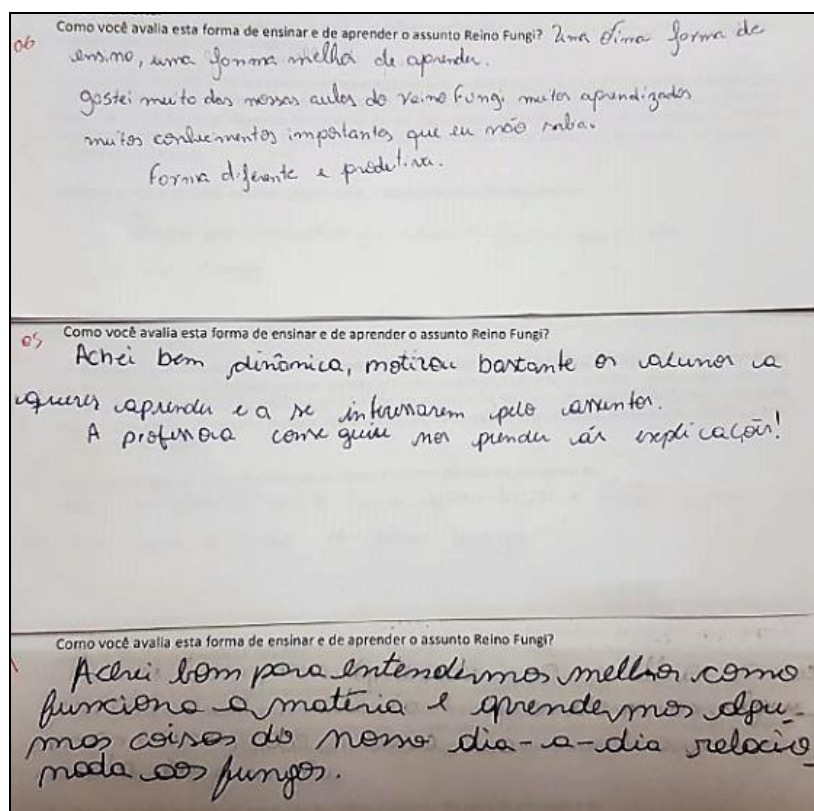 06 Como você avalia esta forma de ensinar e de aprender o assunto Reino Fungi? Uma ótima forma de
ensino, uma forma melhor de aprender.
gostei muito das nossas aulas do reino Fungi muitos aprendizados
muitos conhecimentos importantes que eu não sabia.
Forma diferente e produtiva.
05 Como você avalia esta forma de ensinar e de aprender o assunto Reino Fungi?
Achei bem dinâmica, motivou bastante os alunos a
querer aprender e a se interessarem pelo assunto.
A professora conseguiu nos prender às explicações!
Como você avalia esta forma de ensinar e de aprender o assunto Reino Fungi?
Achei bom para entendermos melhor como
funciona a matéria e aprendermos algu-
mas coisas do nosso dia-a-dia relacio
nada aos fungos.